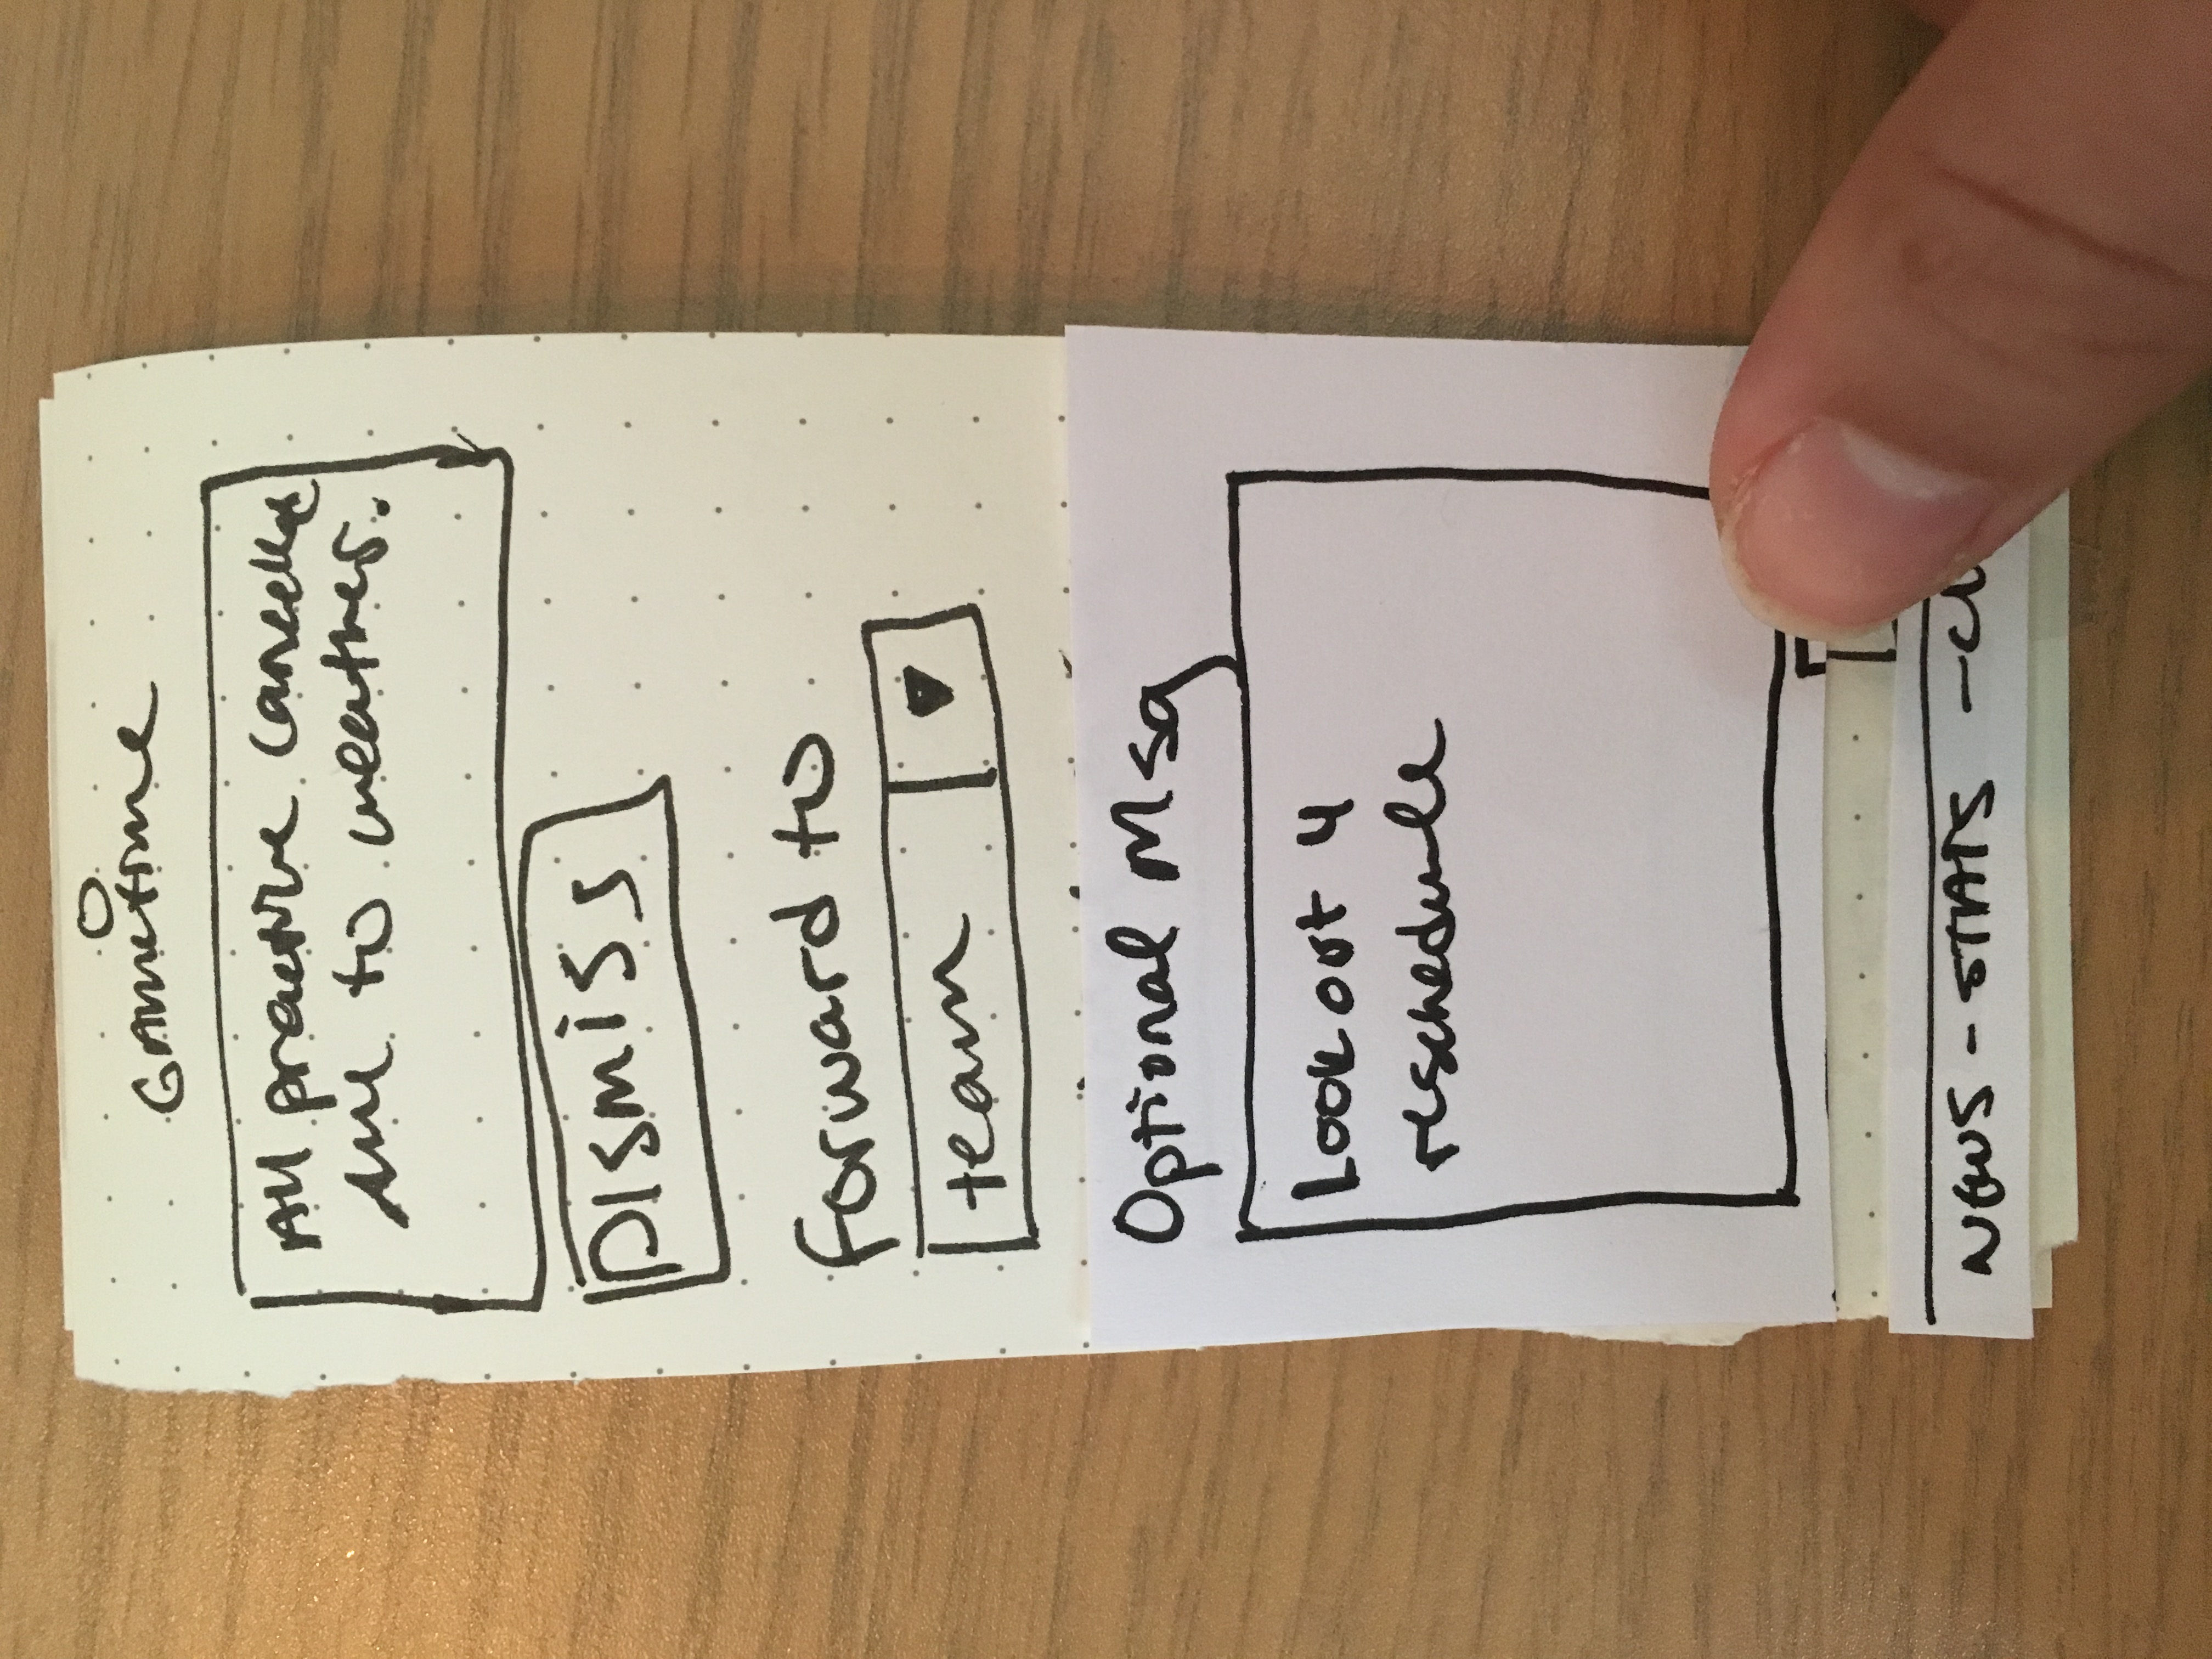 Gametime
All practice cancelled
due to weather.
Dismiss
forward to
team
Optional Msg
Lookout 4
reschedule
NEWS - STATS -